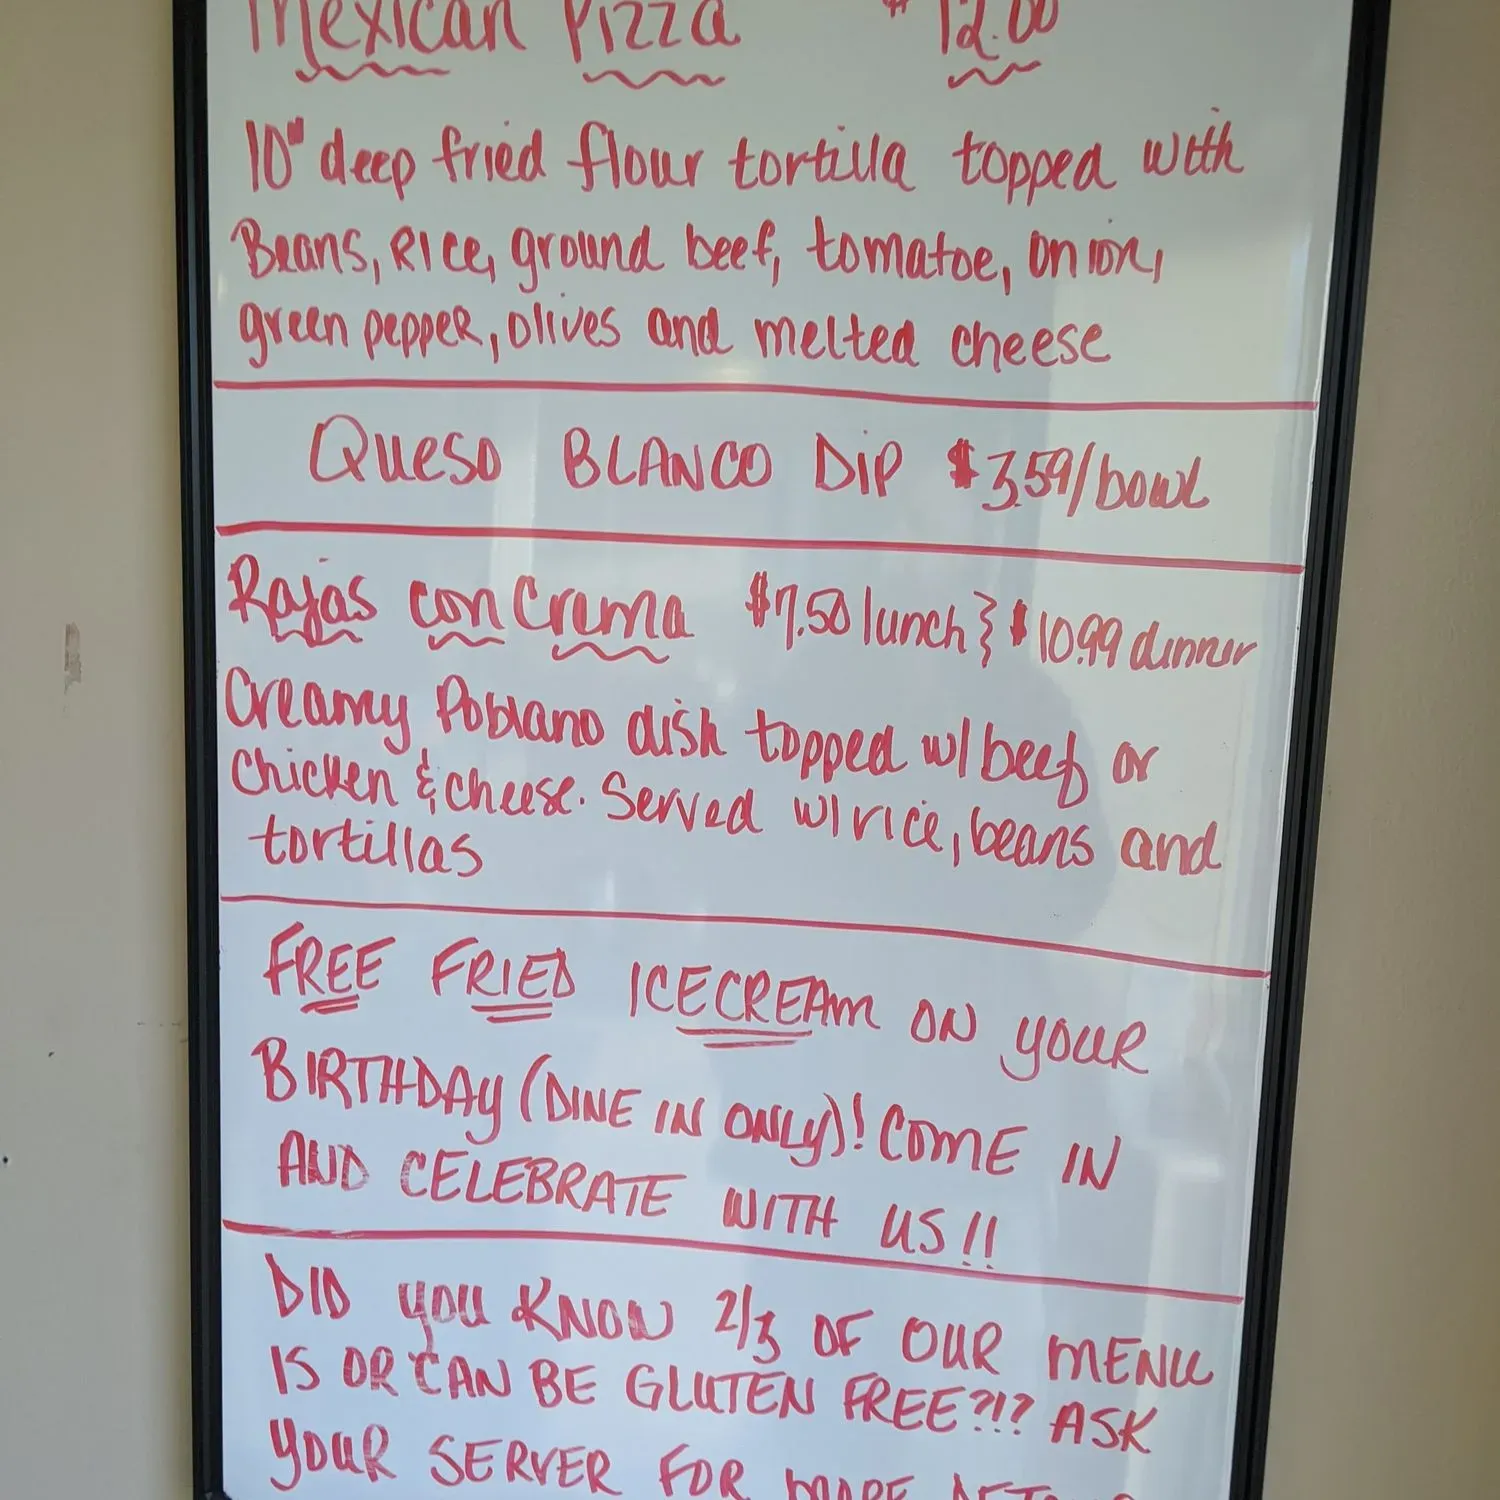 Mexican Pizza $12.00
10" deep fried flour tortilla topped with
Beans, Rice, ground beef, tomatoe, onion,
green pepper, olives and melted cheese
Queso BLANCO Dip $3.59/bowl
Rajas con Crema $7.50 lunch } $10.99 dinner
Creamy Poblano dish topped w/ beef or
Chicken & cheese. Served w/ rice, beans and
tortillas
FREE FRIED ICECREAM ON YOUR
BIRTHDAY (DINE IN ONLY)! COME IN
AND CELEBRATE WITH US!!
DID YOU KNOW 2/3 OF OUR MENU
IS OR CAN BE GLUTEN FREE?!? ASK
YOUR SERVER FOR MORE